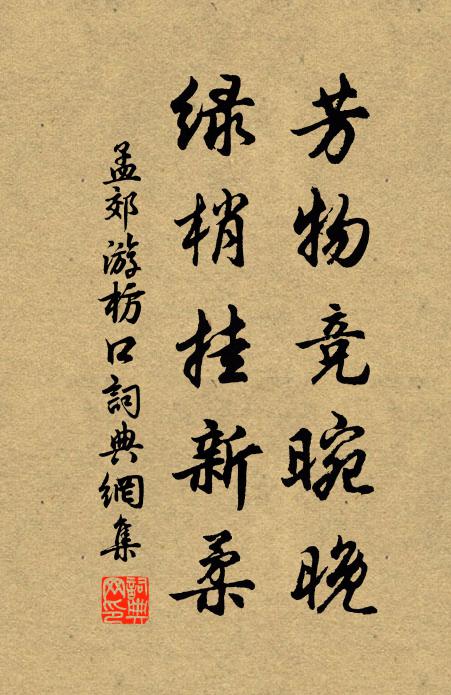 芳物竞晼晚
绿梢挂新柔
孟郊游枋口詞典網集
詞典网印